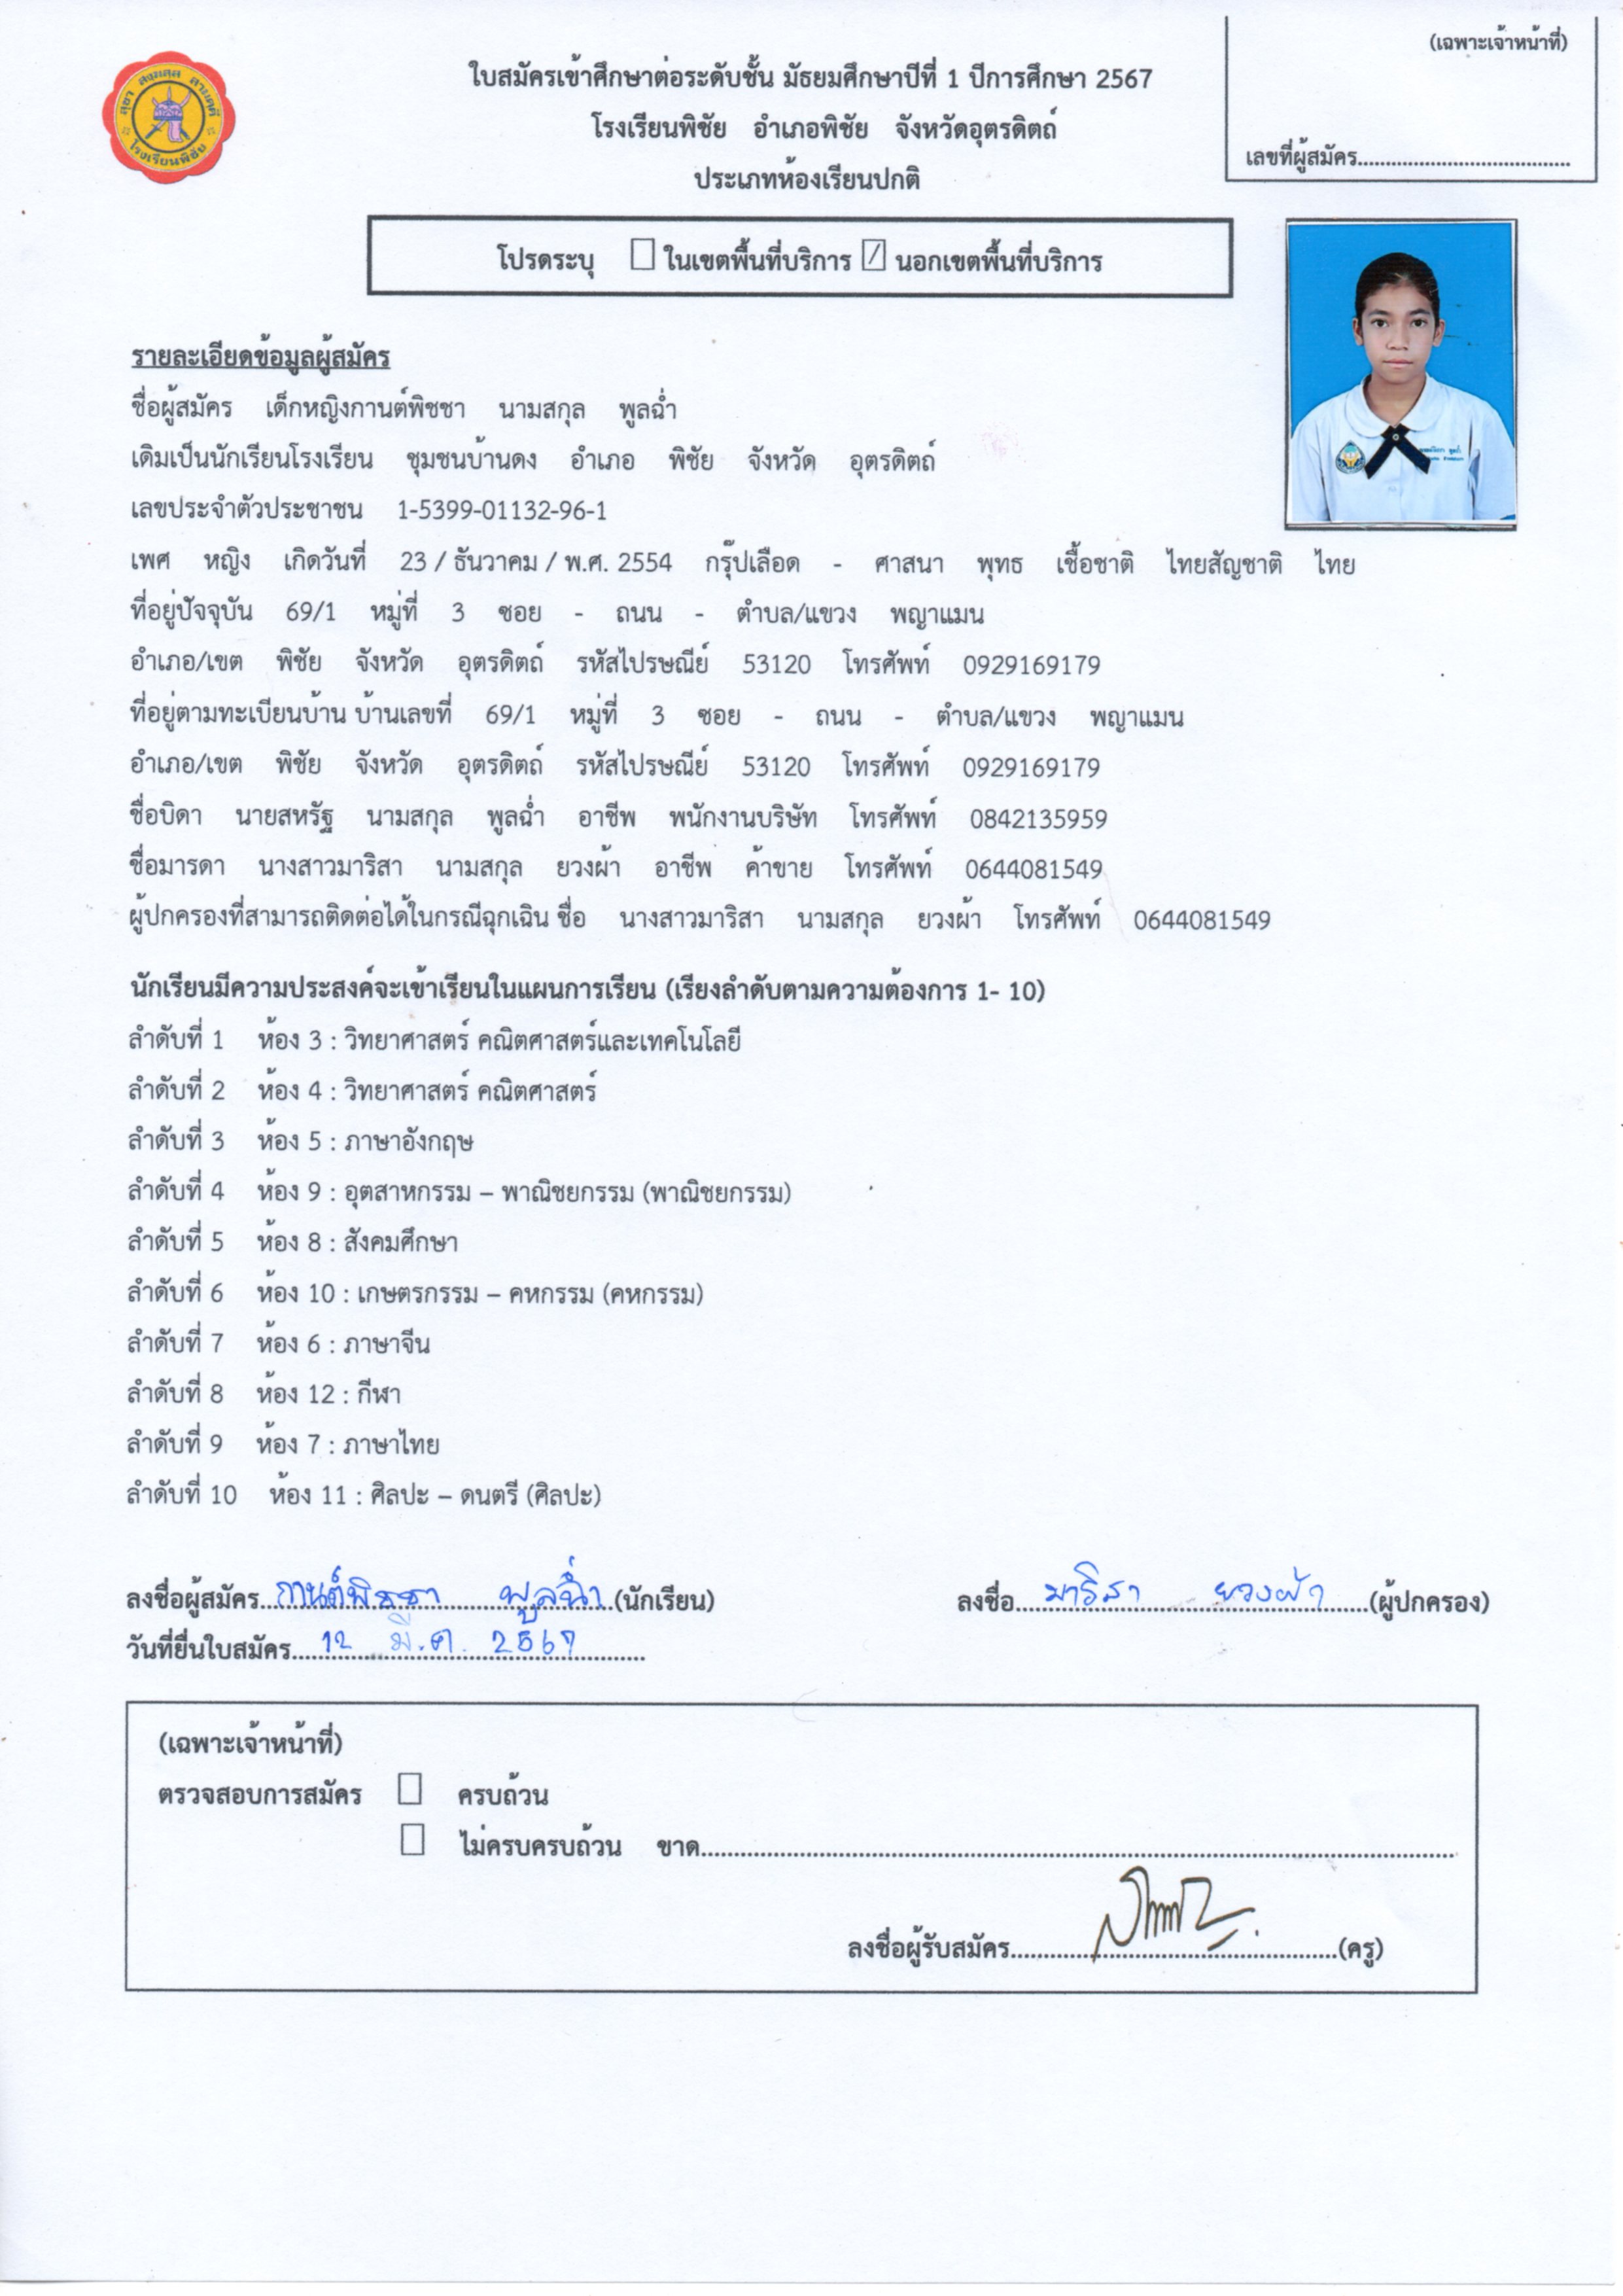 (เฉพาะเจ้าหน้าที่)
ใบสมัครเข้าศึกษาต่อระดับชั้น มัธยมศึกษาปีที่ 1 ปีการศึกษา 2567
โรงเรียนพิชัย อำเภอพิชัย จังหวัดอุตรดิตถ์
เลขที่ผู้สมัคร......................................
ประเภทห้องเรียนปกติ
โรงเรียนพิชัย
โปรดระบุ ☐ ในเขตพื้นที่บริการ ☑ นอกเขตพื้นที่บริการ
รายละเอียดข้อมูลผู้สมัคร
ชื่อผู้สมัคร เด็กหญิงกานต์พิชชา นามสกุล พูลฉ่ำ
เดิมเป็นนักเรียนโรงเรียน ชุมชนบ้านดง อำเภอ พิชัย จังหวัด อุตรดิตถ์
เลขประจำตัวประชาชน 1-5399-01132-96-1
เพศ หญิง เกิดวันที่ 23 / ธันวาคม / พ.ศ. 2554 กรุ๊ปเลือด - ศาสนา พุทธ เชื้อชาติ ไทยสัญชาติ ไทย
ที่อยู่ปัจจุบัน 69/1 หมู่ที่ 3 ซอย - ถนน - ตำบล/แขวง พญาแมน
อำเภอ/เขต พิชัย จังหวัด อุตรดิตถ์ รหัสไปรษณีย์ 53120 โทรศัพท์ 0929169179
ที่อยู่ตามทะเบียนบ้าน บ้านเลขที่ 69/1 หมู่ที่ 3 ซอย - ถนน - ตำบล/แขวง พญาแมน
อำเภอ/เขต พิชัย จังหวัด อุตรดิตถ์ รหัสไปรษณีย์ 53120 โทรศัพท์ 0929169179
ชื่อบิดา นายสหรัฐ นามสกุล พูลฉ่ำ อาชีพ พนักงานบริษัท โทรศัพท์ 0842135959
ชื่อมารดา นางสาวมาริสา นามสกุล ยวงผ้า อาชีพ ค้าขาย โทรศัพท์ 0644081549
ผู้ปกครองที่สามารถติดต่อได้ในกรณีฉุกเฉิน ชื่อ นางสาวมาริสา นามสกุล ยวงผ้า โทรศัพท์ 0644081549
นักเรียนมีความประสงค์จะเข้าเรียนในแผนการเรียน (เรียงลำดับตามความต้องการ 1- 10)
ลำดับที่ 1 ห้อง 3 : วิทยาศาสตร์ คณิตศาสตร์และเทคโนโลยี
ลำดับที่ 2 ห้อง 4 : วิทยาศาสตร์ คณิตศาสตร์
ลำดับที่ 3 ห้อง 5 : ภาษาอังกฤษ
ลำดับที่ 4 ห้อง 9 : อุตสาหกรรม – พาณิชยกรรม (พาณิชยกรรม)
ลำดับที่ 5 ห้อง 8 : สังคมศึกษา
ลำดับที่ 6 ห้อง 10 : เกษตรกรรม – คหกรรม (คหกรรม)
ลำดับที่ 7 ห้อง 6 : ภาษาจีน
ลำดับที่ 8 ห้อง 12 : กีฬา
ลำดับที่ 9 ห้อง 7 : ภาษาไทย
ลำดับที่ 10 ห้อง 11 : ศิลปะ – ดนตรี (ศิลปะ)
ลงชื่อผู้สมัคร...กานต์พิชชา พูลฉ่ำ...(นักเรียน) ลงชื่อ...มาริสา ยวงผ้า...(ผู้ปกครอง)
วันที่ยื่นใบสมัคร...12 มี.ค. 2567...
(เฉพาะเจ้าหน้าที่)
ตรวจสอบการสมัคร ☐ ครบถ้วน
☐ ไม่ครบครบถ้วน ขาด......................................
ลงชื่อผู้รับสมัคร......................................(ครู)